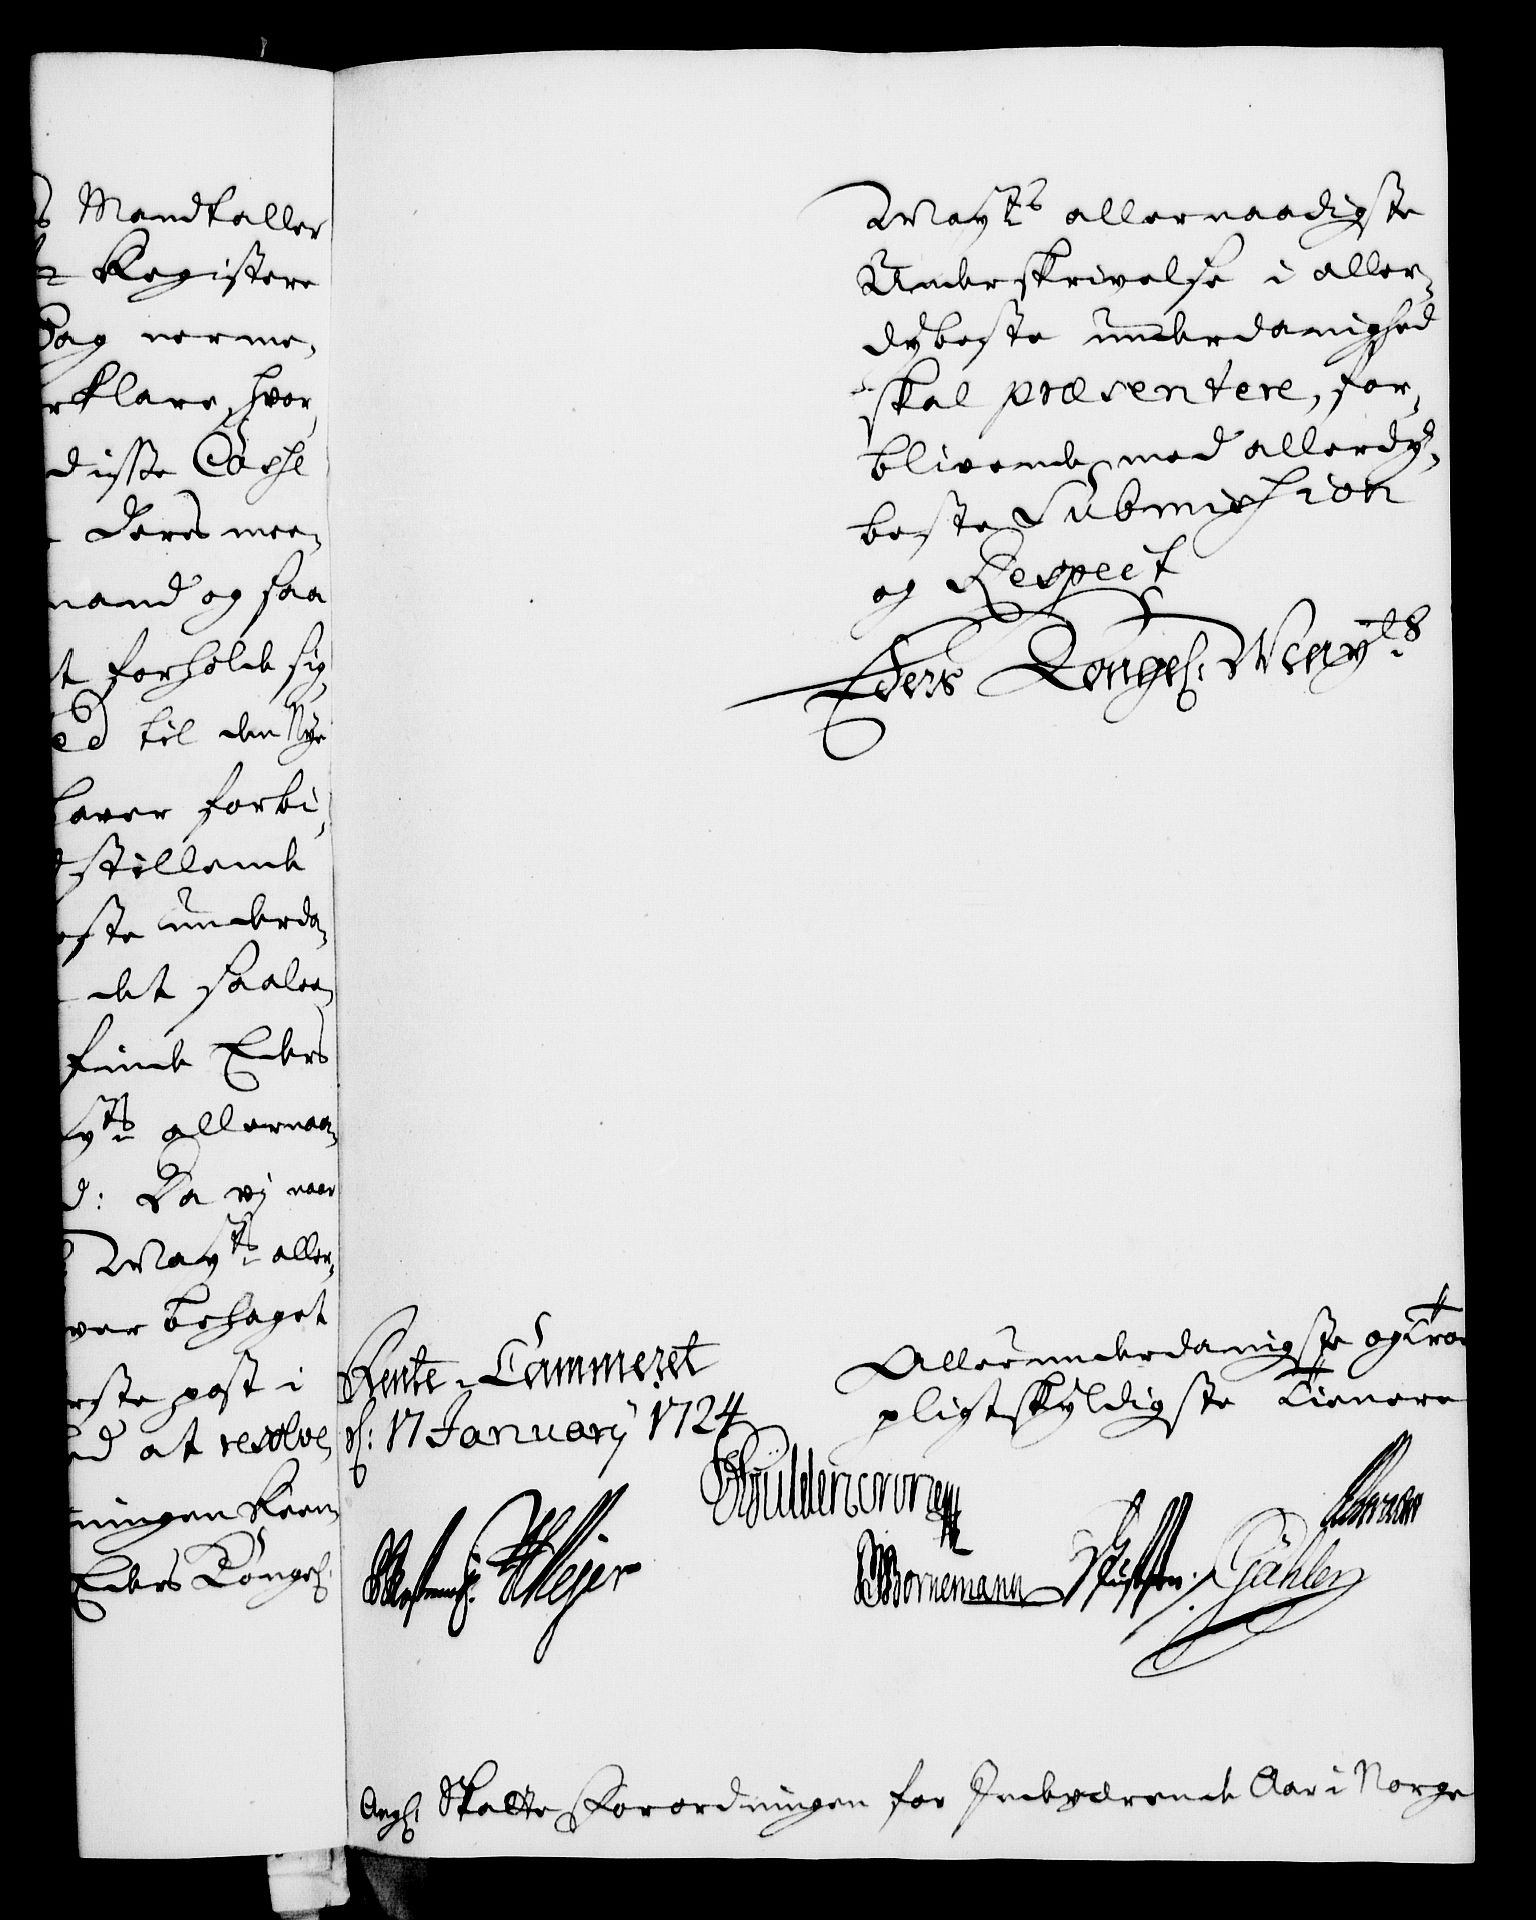 Mandtaller
Registere
Sag nerme-
rklare, hvor
disse Casse
Deres mee-
mand og saa
t forholde sig,
ed til den Nye
haver forbi,
stillende
este underda-
det saalee-
finde Eders
yts allernaa-
d: Da vi naar
Mayts aller-
ver behaget
rste post i
ed at resolve,
ningen Reen-
Eders Kongel:
Mayts allernaadigste
Underskrivelse i aller-
dybeste underdanighed
skal præsentere, for-
blivende med allerdy-
beste Submission
og Respect
Eders Kongel: Mayts
Rente-Cammeret
d: 17 January 1724
Allerunderdanigste og troe
pligtskyldigste Tienere
Güldencrone
Meyer
Bornemann
Gähler
Angl: Skatte Forordningen for Indeværende Aar i Norge